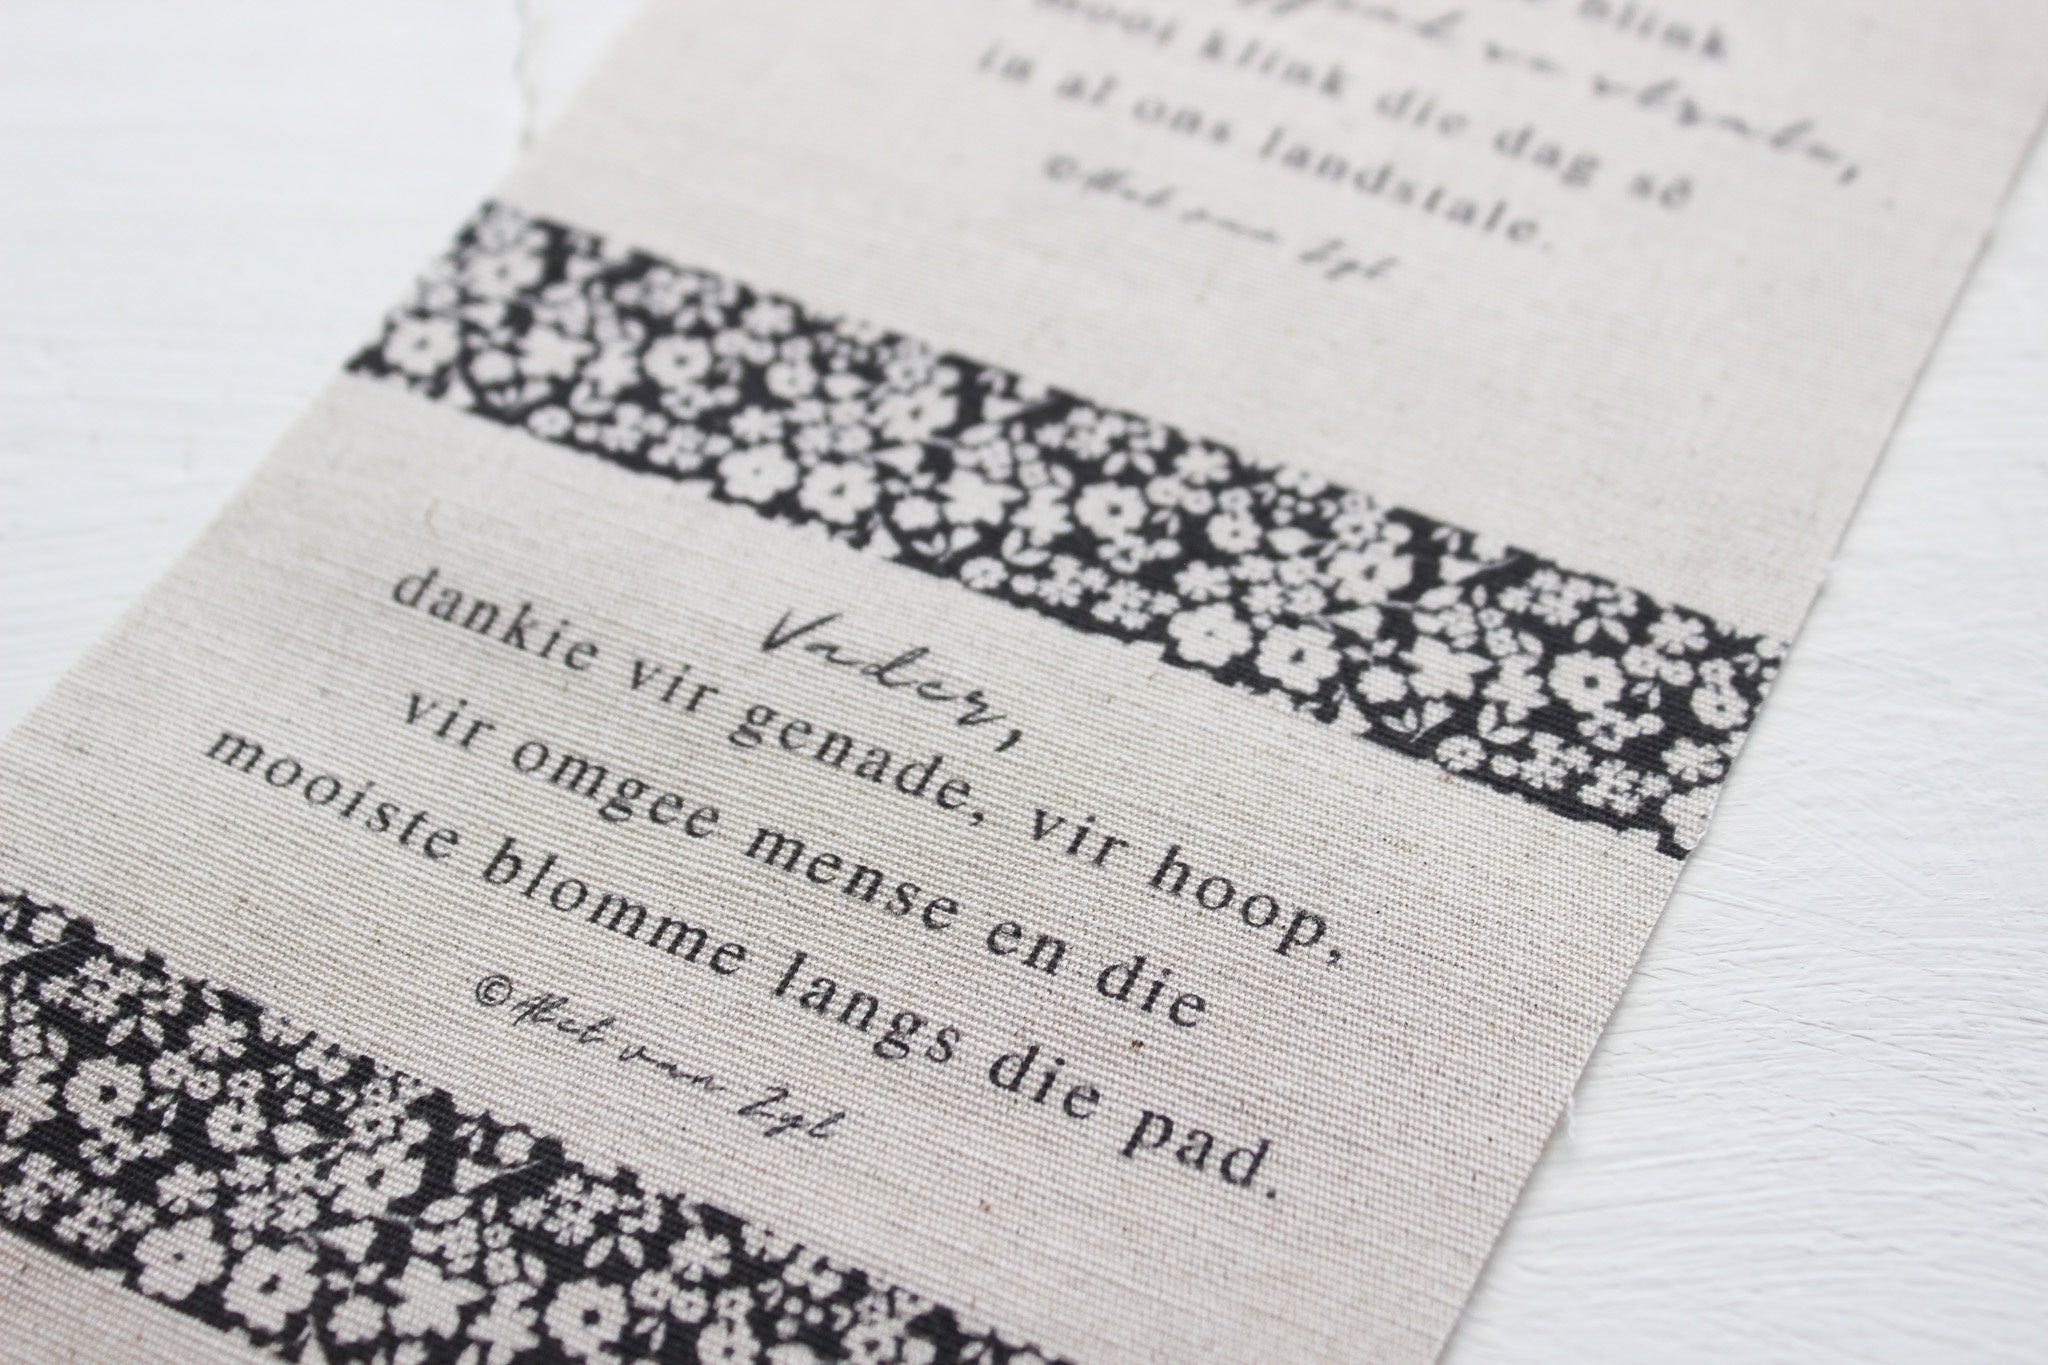 blink
mooi klink die dag sê
in al ons landstale.
©Abel van Zyl
Vader,
dankie vir genade, vir hoop,
vir omgee mense en die
mooiste blomme langs die pad.
©Abel van Zyl